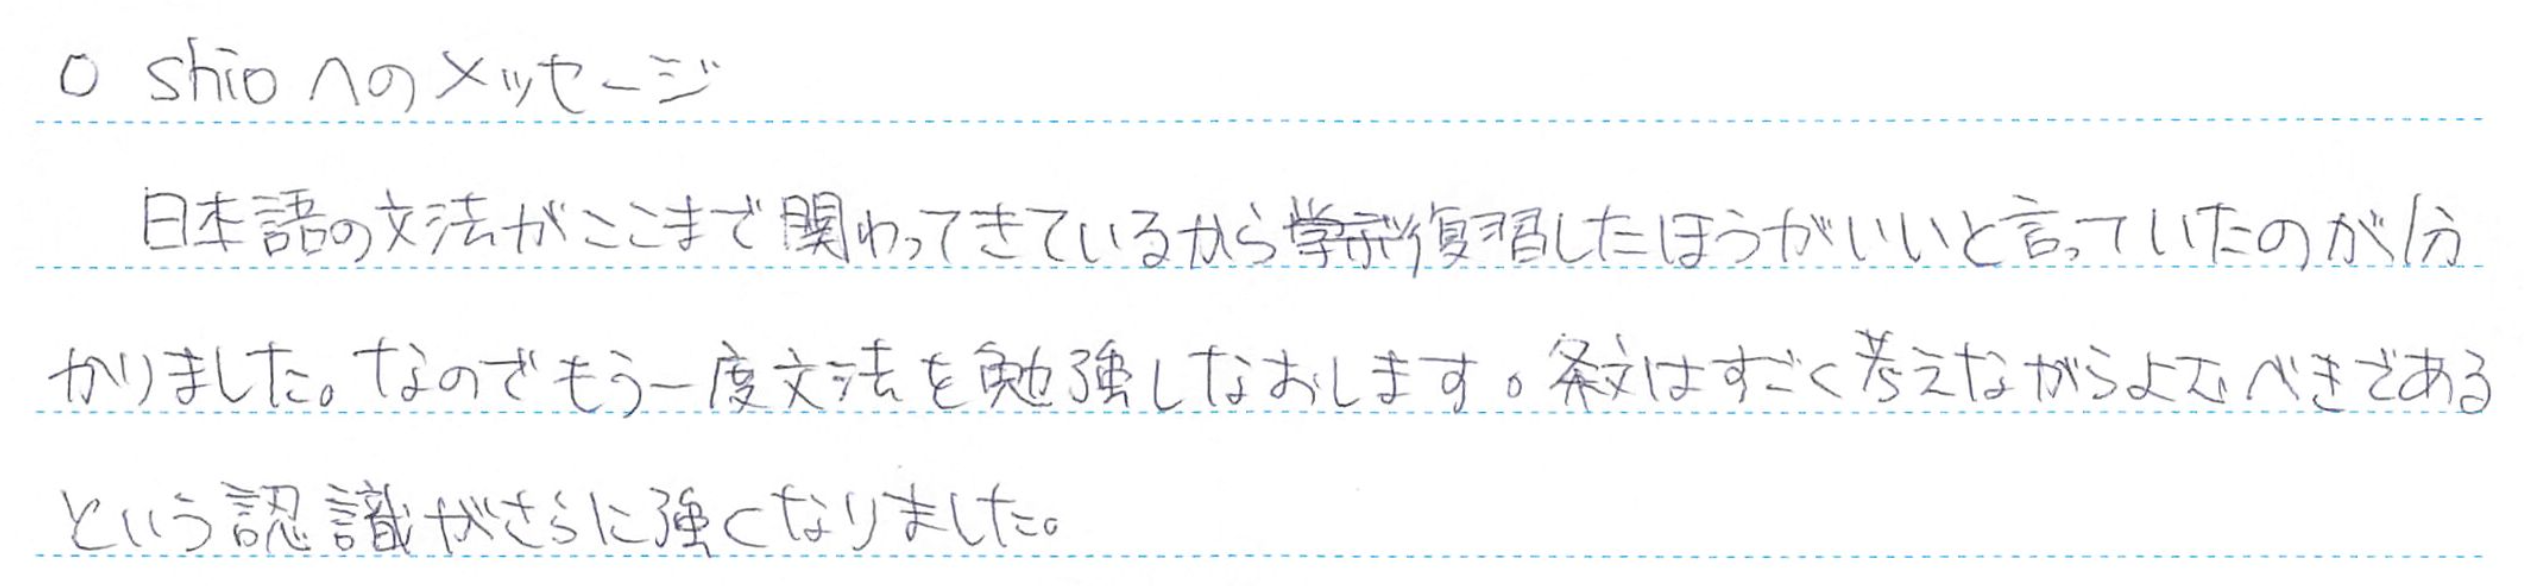 ○ shioへのメッセージ
日本語の文法がここまで関わってきているから復習したほうがいいと言っていたのが分
かりました。なのでもう一度文法を勉強しなおします。条文はすごく考えながらよむべきである
という認識がさらに強くなりました。